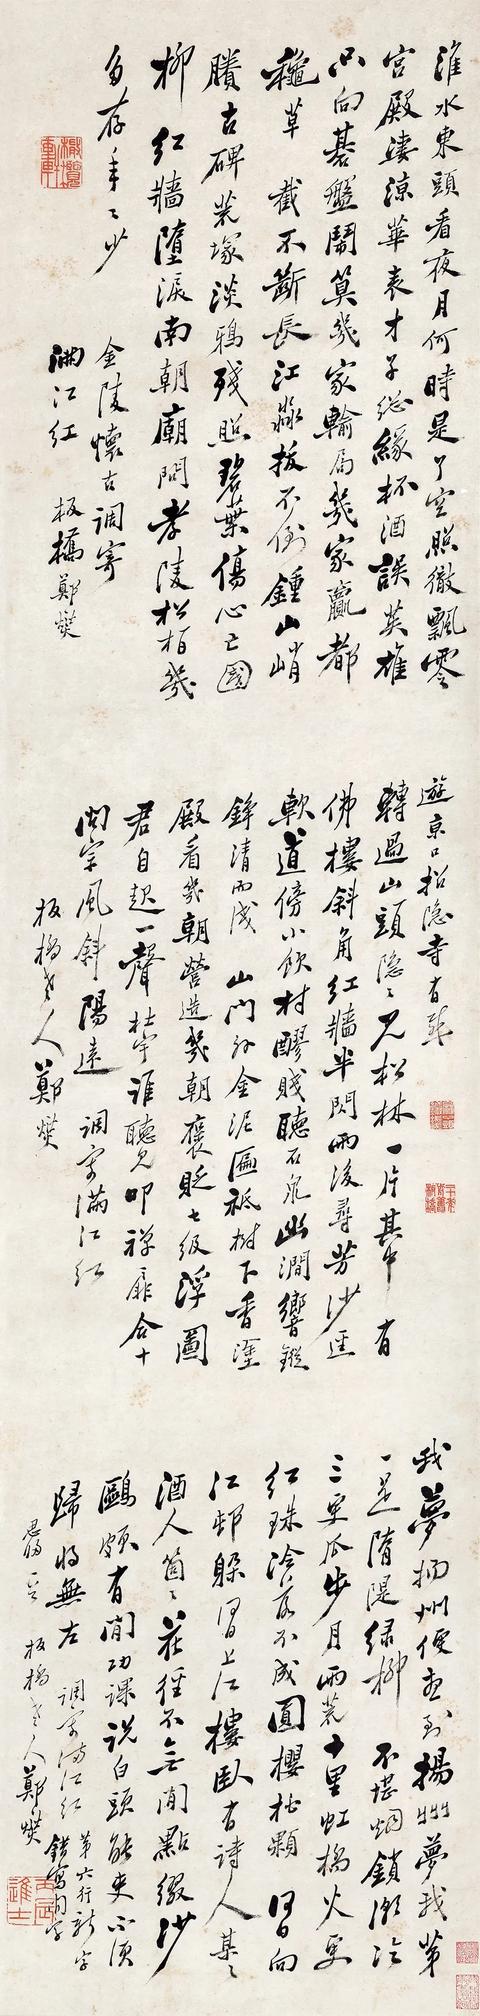 淮水東頭看夜月何時是了空照徹飄零
宮殿淒涼華表才子總緣杯酒誤英雄
只向碁盤鬧算幾家輸局幾家贏都
草 截不斷長江淼拔不倒鍾山峭
賸古碑荒塚淡鴉殘照碧葉傷心亡國
柳 紅牆墮淚南朝廟問孝陵松柏幾
多存年〻少
金陵懷古調寄
滿江紅 板橋鄭燮
遊京口招隱寺有
轉過山頭隱〻見松林一片其中有
佛樓斜角紅牆半閃雨後尋芳沙徑
軟道傍小飲村醪賤聽石泉幽澗響鏦
錚清而淺 山門外金泥匾祗樹下香塗
殿看幾朝營造幾朝褒貶七級浮圖
君自起一聲杜宇誰聽見叩禪扉合十
閟宇風斜陽遠 調寄滿江紅
板橋老人鄭燮
我夢揚州便想到揚州夢我第
一是隋隄綠柳 不堪煙鎖潮打
三更瓜步月雨荒十里虹橋火更
紅珠冷不成圓櫻桃顆 何日向
江邨躲何日上江樓臥有詩人某〻
酒人箇〻花徑不無閒點綴沙
鷗頗有閒功課說白頭能吏不須
歸將無左 調寄滿江紅
思揚州 板橋老人鄭燮
第六行新字
錯寫